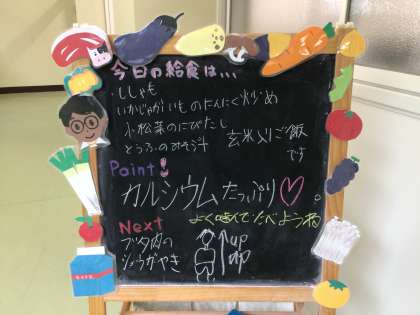 今日の給食は...
・ししゃも
いかじゃがいものにんにく炒め
小松菜のにびたし
とうふのみそ汁
玄米入りご飯
です
Point!
カルシウムたっぷり♡
よく噛んでたべようね
Next
ブタ肉の
しょうがやき
up
up